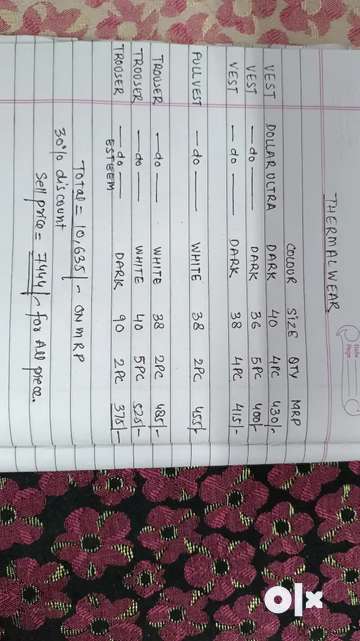 THERMAL WEAR
COLOUR SIZE QTY MRP
VEST DOLLAR ULTRA DARK 40 4PC 430/-
VEST — do — DARK 36 5PC 400/-
VEST — do — DARK 38 4PC 415/-
FULL VEST — do — WHITE 38 2PC 455/-
TROUSER — do — WHITE 38 2PC 485/-
TROUSER — do — WHITE 40 5PC 525/-
TROUSER — do — DARK 90 2PC 375/-
ESTEEM
TOTAL = 10,635/- ON MRP
30% discount
Sell price = 7444/- for All piece.
olx